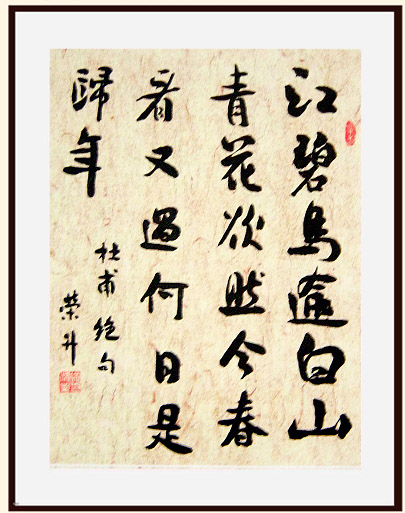 江碧鳥逾白山
青花欲然今春
看又過何日是
歸年
杜甫絶句
榮升